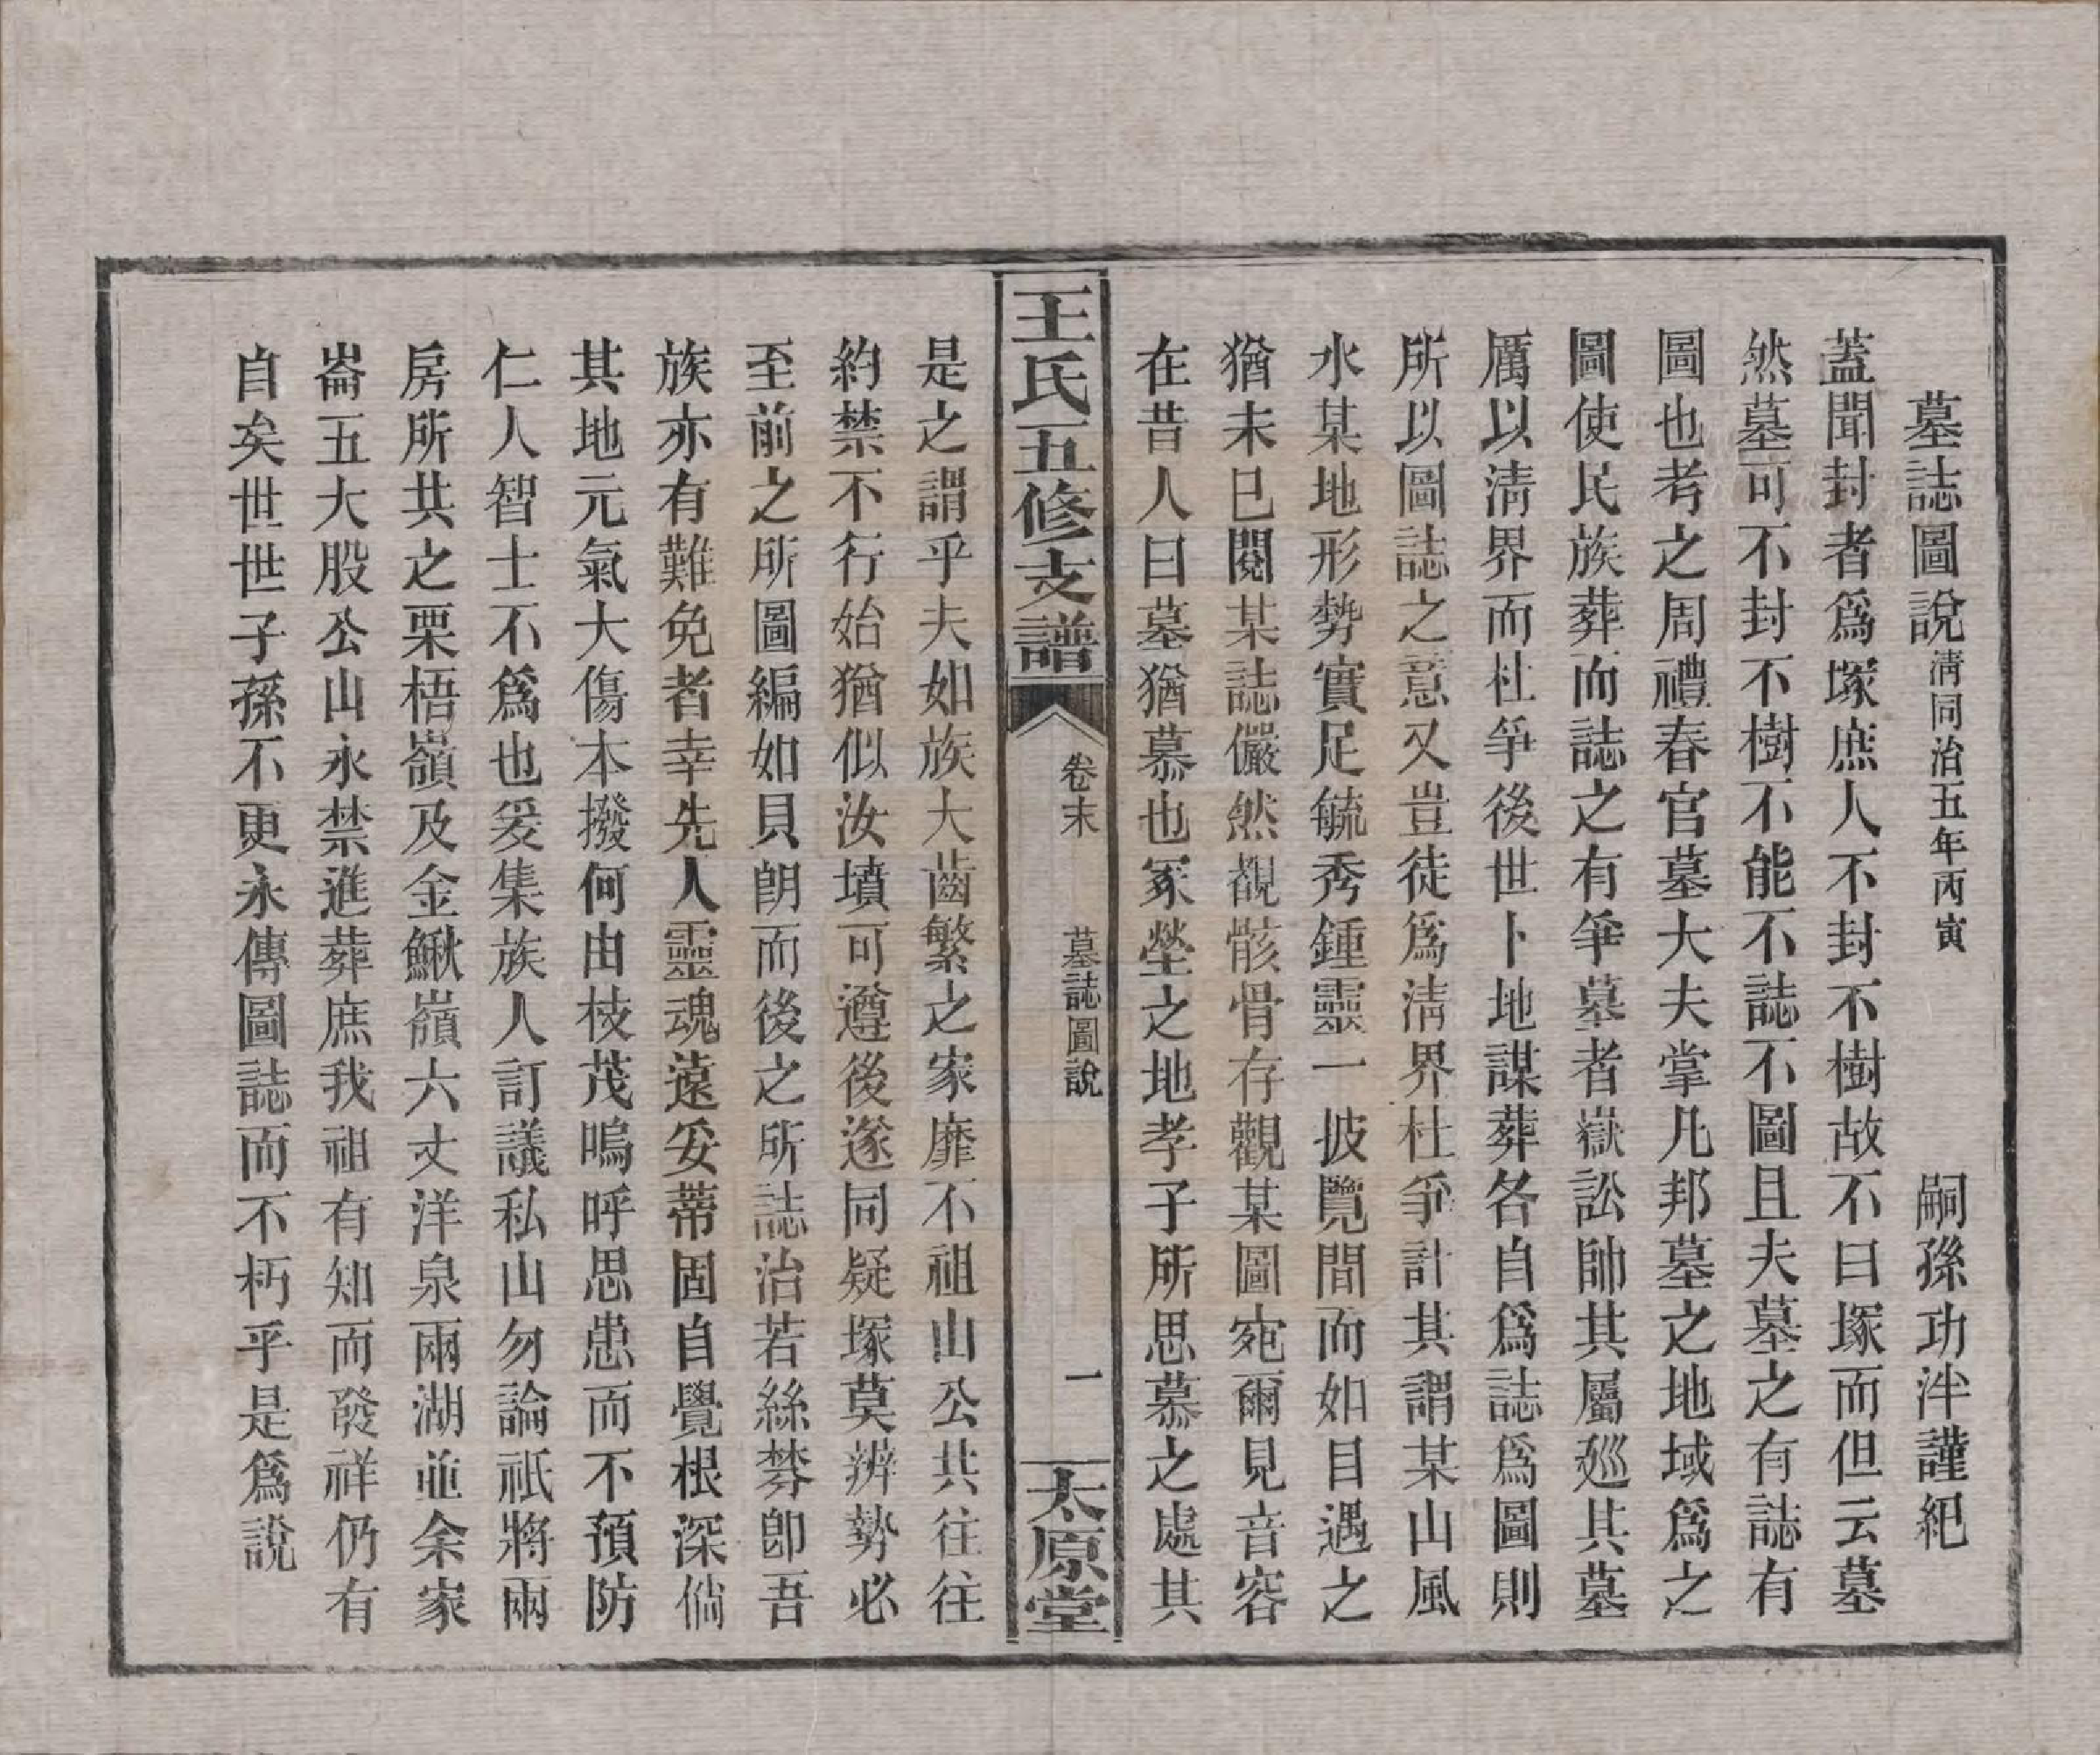 墓誌圖說清同治五年丙寅 嗣孫功泮謹紀
蓋聞封者爲塚庶人不封不樹故不曰塚而但云墓
然墓可不封不樹不能不誌不圖且夫墓之有誌有
圖也考之周禮春官墓大夫掌凡邦墓之地域爲之
圖使民族葬而誌之有爭墓者嶽訟帥其屬廵其墓
厲以淸界而杜爭後世卜地謀葬各自爲誌爲圖則
所以圖誌之意又豈徒爲淸界杜爭計其謂某山風
水某地形勢實足毓秀鍾靈一披覽間而如目遇之
猶未已閱某誌儼然覩骸骨存觀某圖宛爾見音容
在昔人曰墓猶慕也冢塋之地孝子所思慕之處其
王氏五修支譜 卷末 墓誌圖說 一 太原堂
是之謂乎夫如族大齒繁之家靡不祖山公共往往
約禁不行始猶似汝墳可遵後遂同疑塚莫辨勢必
至前之所圖編如貝朗而後之所誌治若絲棼卽吾
族亦有難免者幸先人靈魂遠妥蒂固自覺根深倘
其地元氣大傷本撥何由枝茂嗚呼思患而不預防
仁人智士不爲也爰集族人訂議私山勿論祇將兩
房所共之栗梧嶺及金鰍嶺六丈洋泉兩湖並余家
崙五大股公山永禁進葬庶我祖有知而發祥仍有
自矣世世子孫不更永傳圖誌而不朽乎是爲說